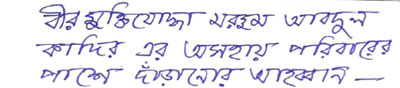 বীর মুক্তিযোদ্ধা মরহুম আবদুল
কাদির এর অসহায় পরিবারের
পাশে দাঁড়ানোর আহব্বান —